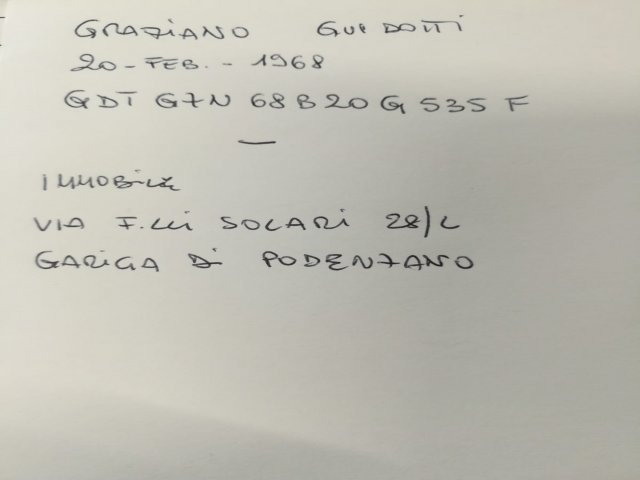 GRAZIANO GUIDOTTI
20-FEB.-1968
GDT GZN 68B20G535F
—
IMMOBILE
VIA F.LLI SOLARI 28/C
GARIGA DI PODENZANO